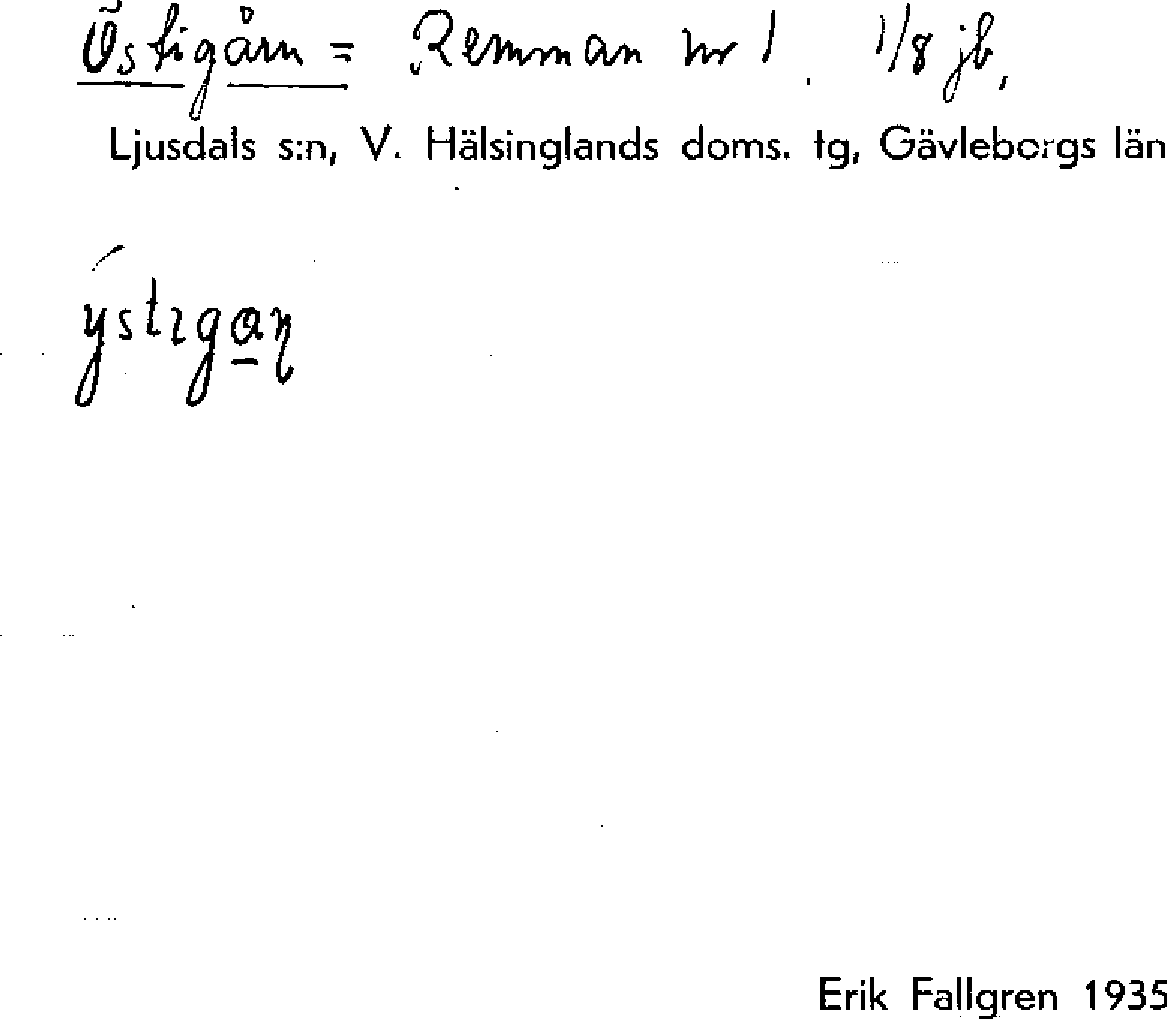 Östigårn = Remman nr 1. 1/8 jb,
Ljusdals s:n, V. Hälsinglands doms. tg, Gävleborgs län
ýstɩga̱ꞃ
Erik Fallgren 1935